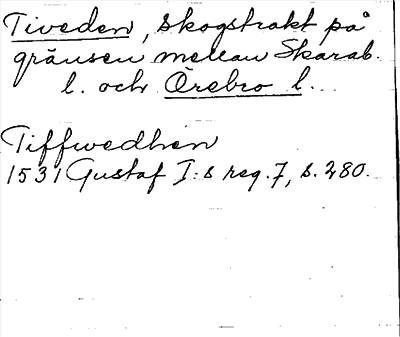 Tiveden, skogstrakt på
gränsen mellan Skarab.
l. och Örebro l...
Tiffwedhen
1531 Gustaf I:s reg. 7, s. 280.